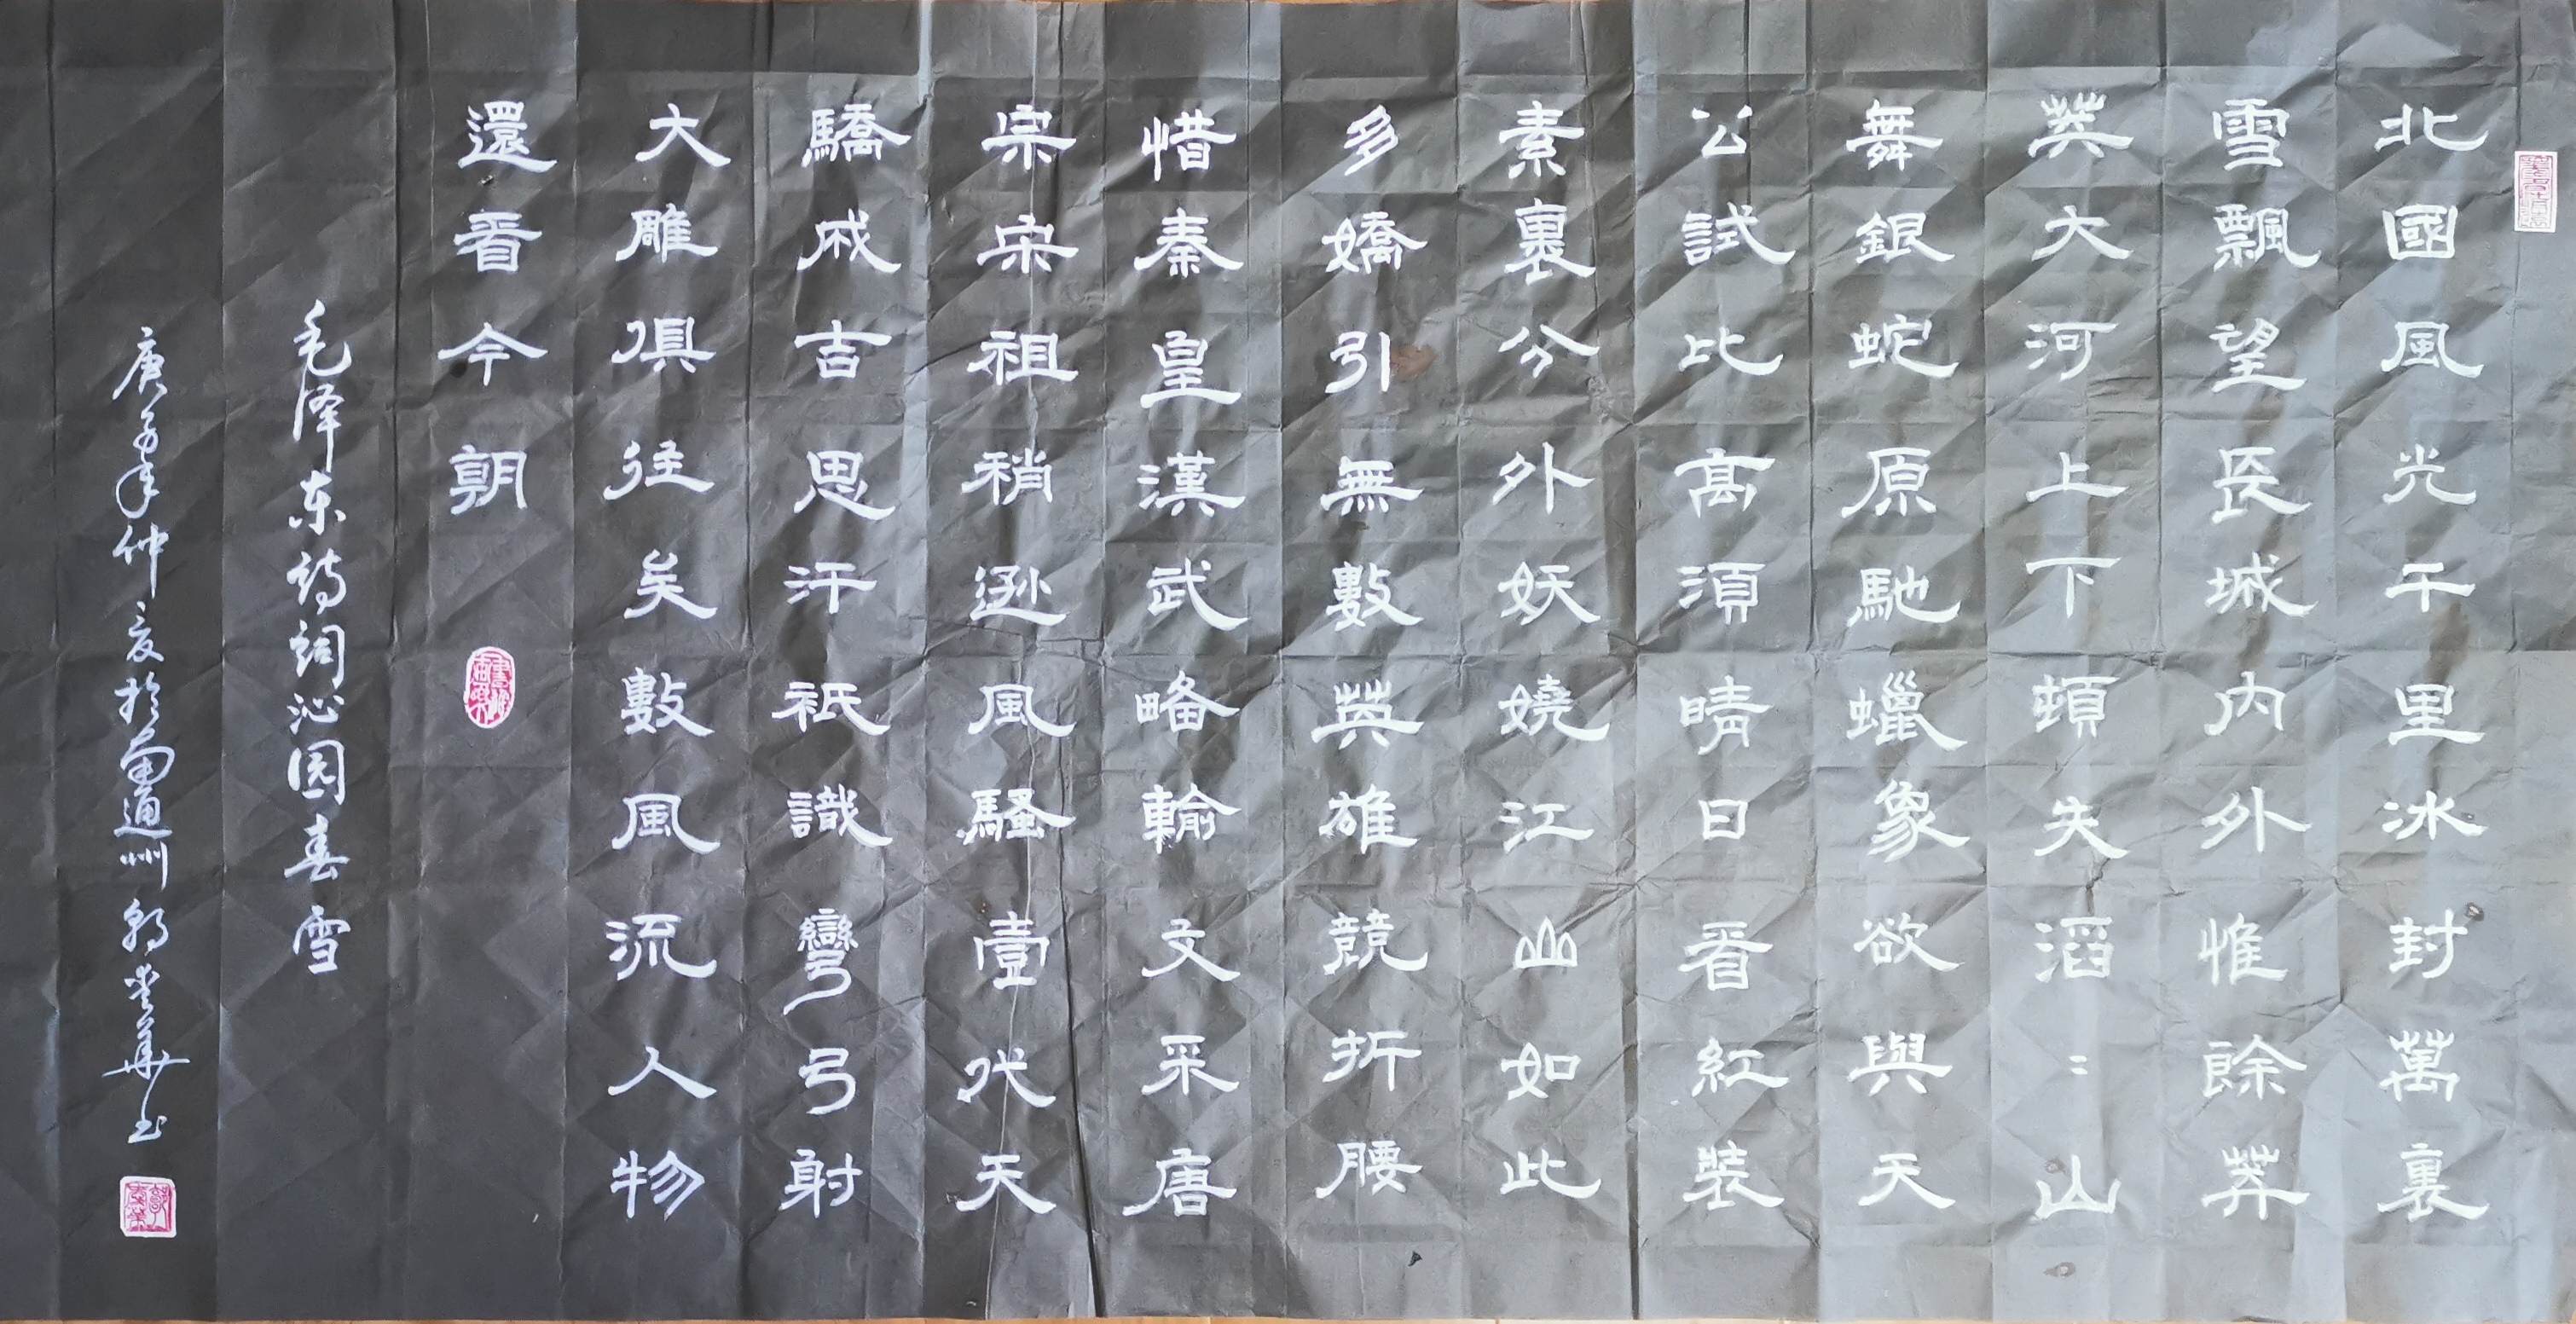 北國風光千里冰封萬裏
雪飄望長城内外惟餘莽
莽大河上下頓失滔〻山
舞銀蛇原馳蠟象欲與天
公試比高須晴日看紅裝
素裹分外妖嬈江山如此
多嬌引無數英雄競折腰
惜秦皇漢武略輸文采唐
宗宋祖稍遜風騷壹代天
驕成吉思汗祇識彎弓射
大雕俱往矣數風流人物
還看今朝
毛泽东诗词沁园春雪
庚子年仲夏於南通州華书